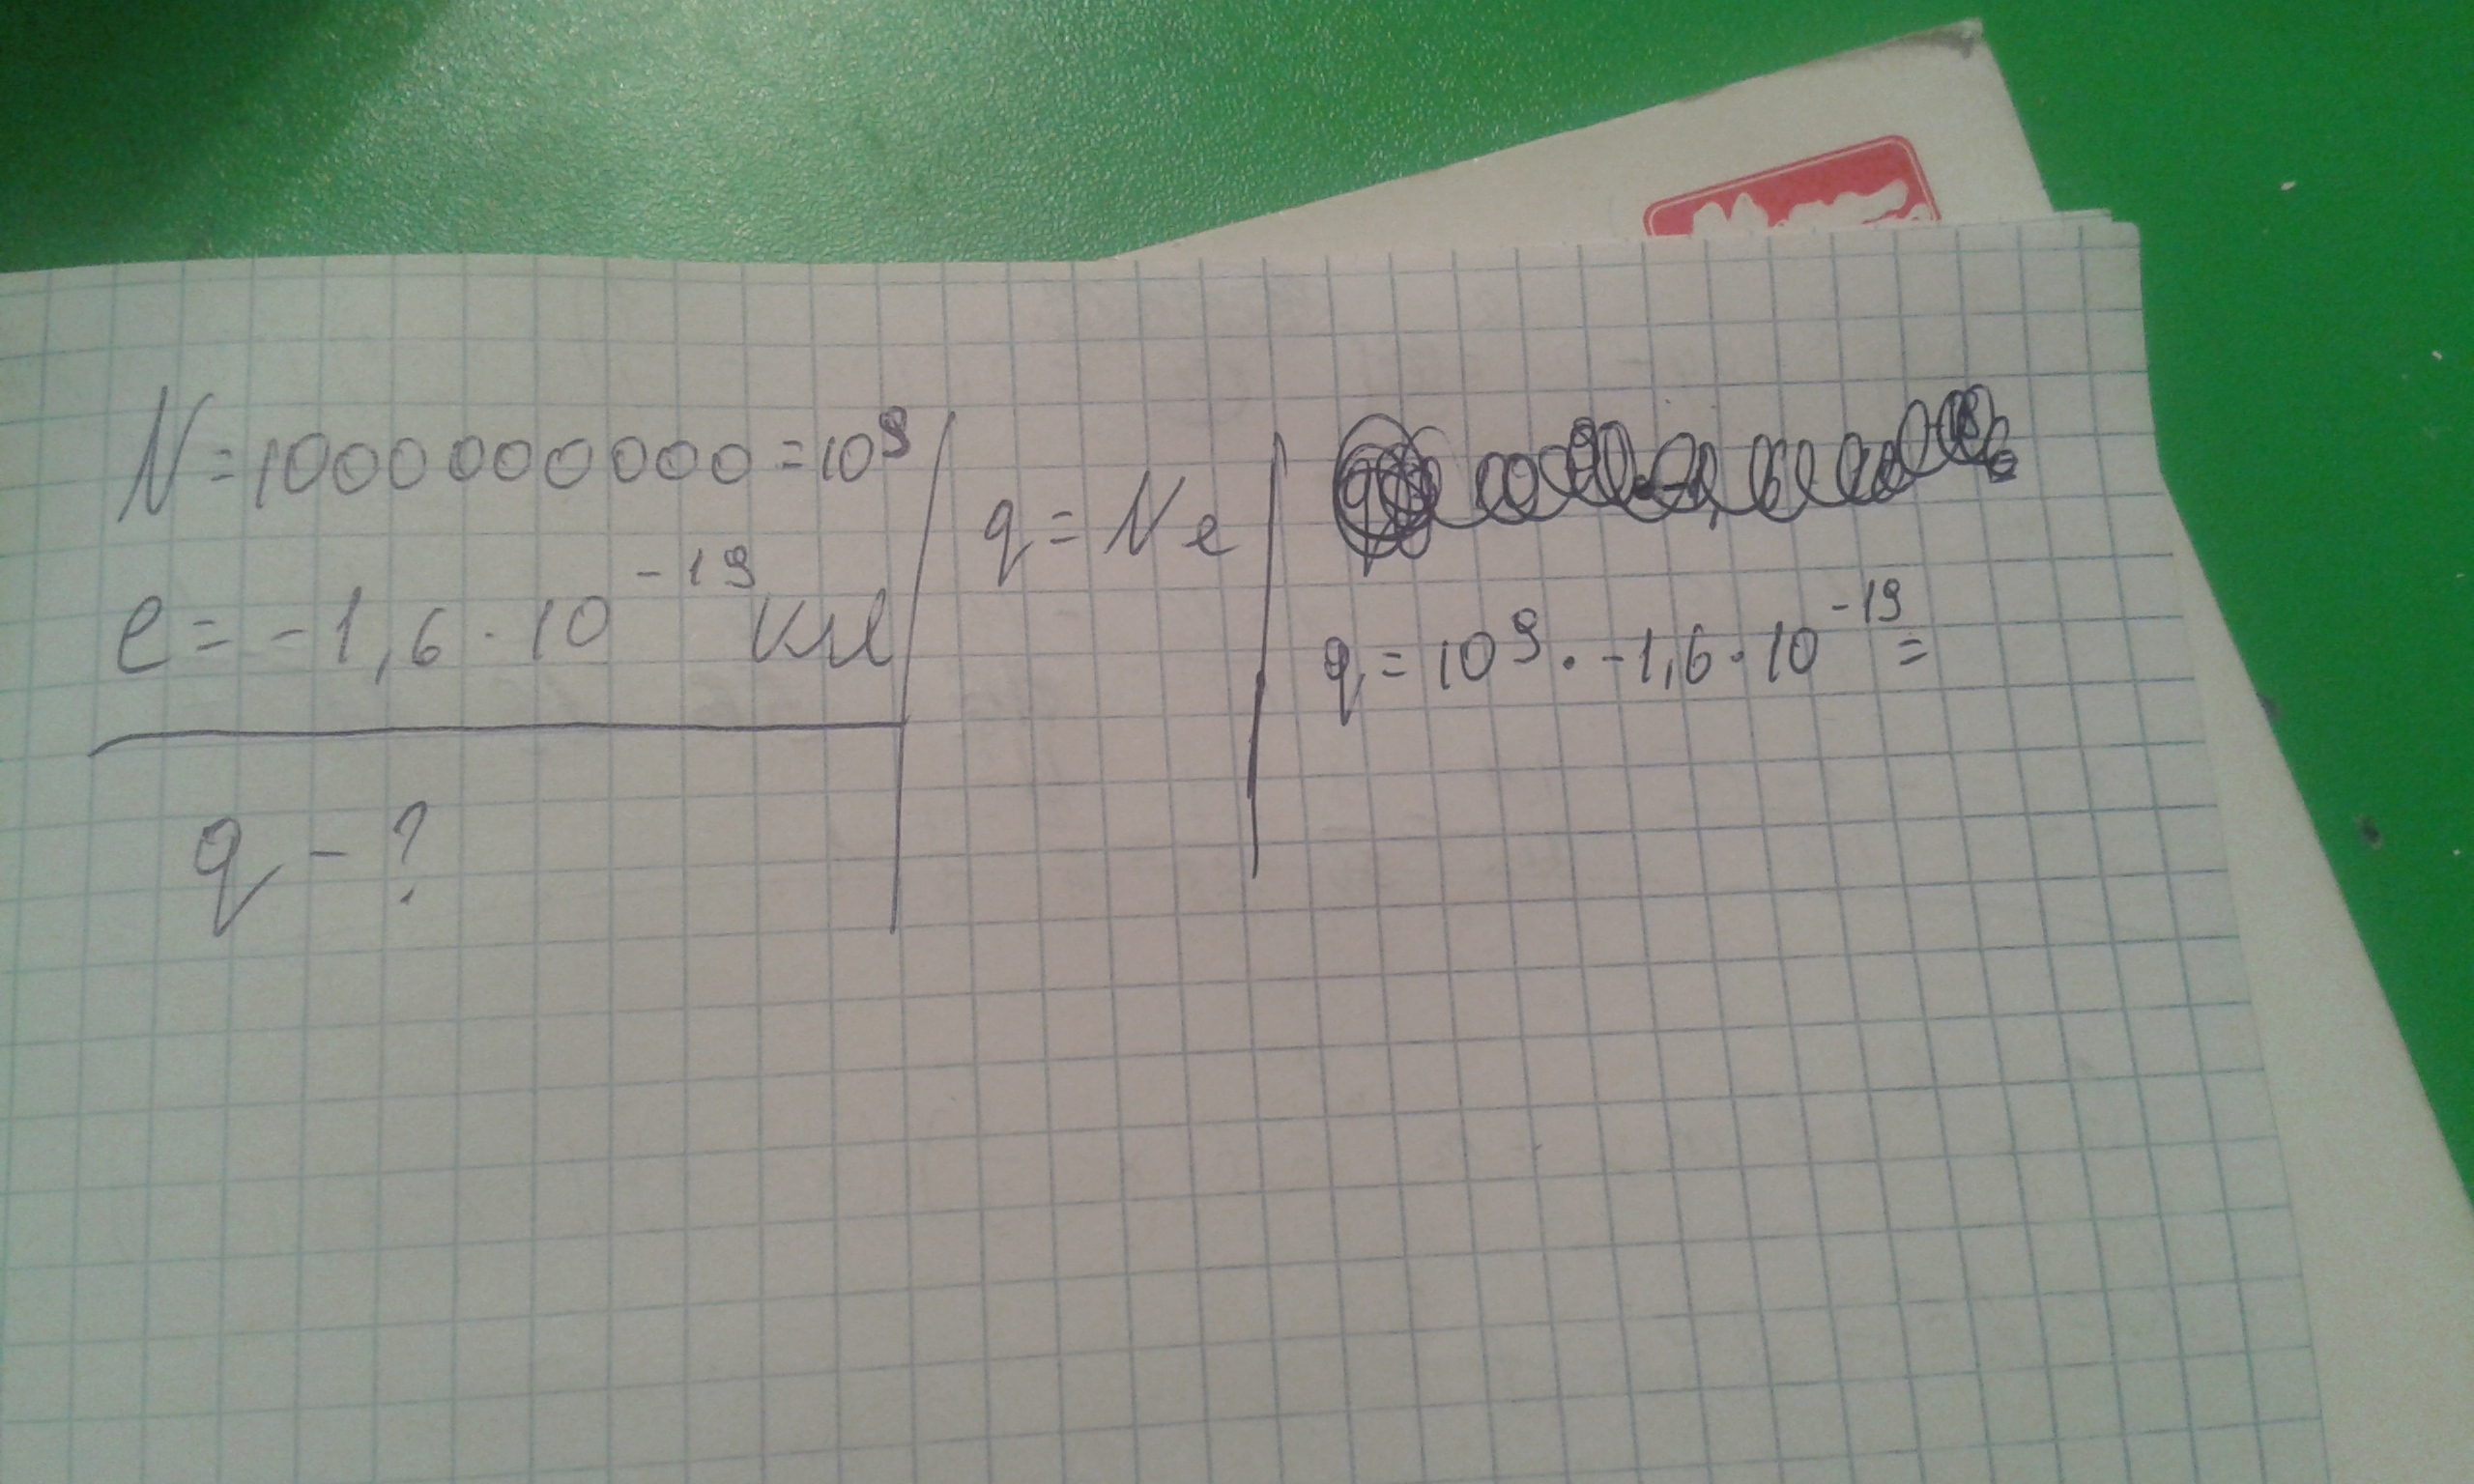 N = 1000000000 = 10⁹
e = -1,6 · 10⁻¹⁹ Кл
q - ?
q = Ne
q = 10⁹ · -1,6 · 10⁻¹⁹ =